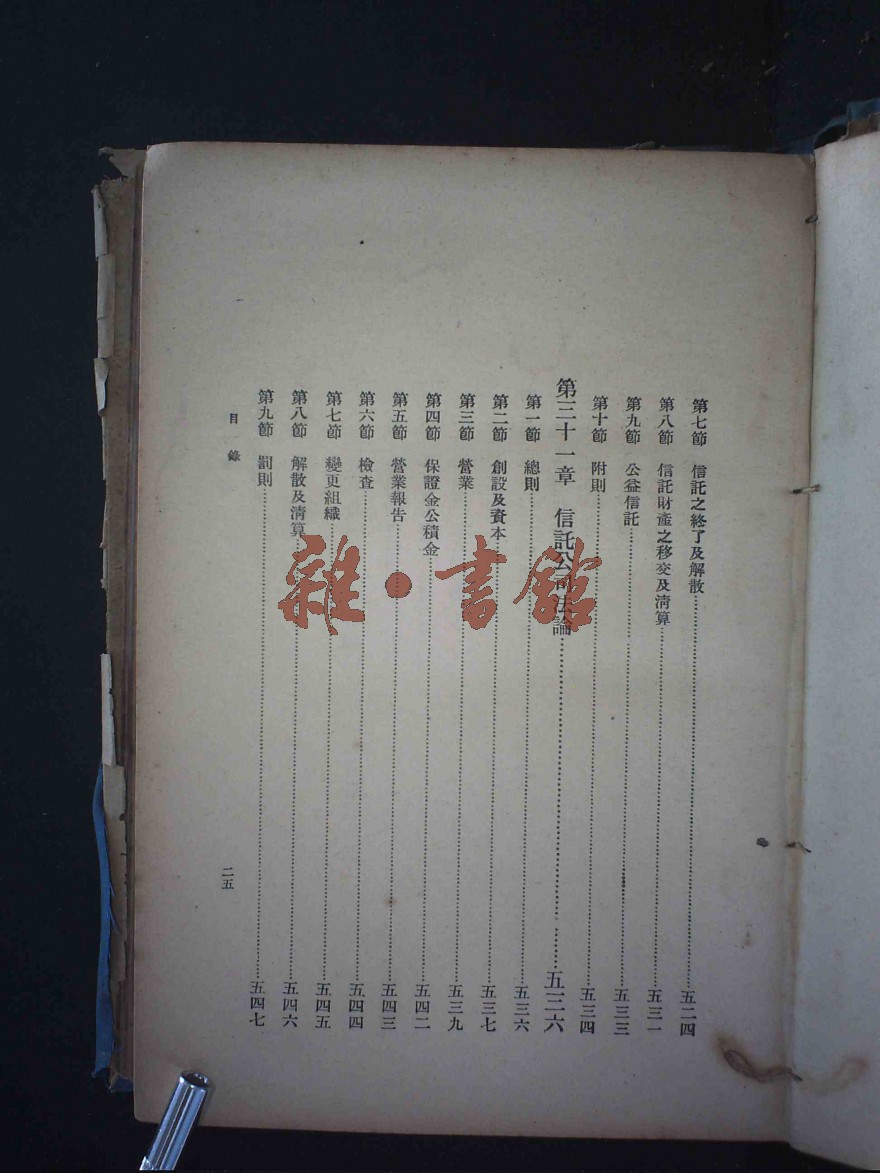 第七節 信託之終了及解散……五二四
第八節 信託財產之移交及清算……五三一
第九節 公益信託……五三三
第十節 附則……五三四
第三十一章 信託公司法論……五三六
第一節 總則……五三六
第二節 創設及資本……五三七
第三節 營業……五三九
第四節 保證金公積金……五四二
第五節 營業報告……五四三
第六節 檢查……五四四
第七節 變更組織……五四五
第八節 解散及清算……五四六
第九節 罰則……五四七
目錄
二五
雜·書館